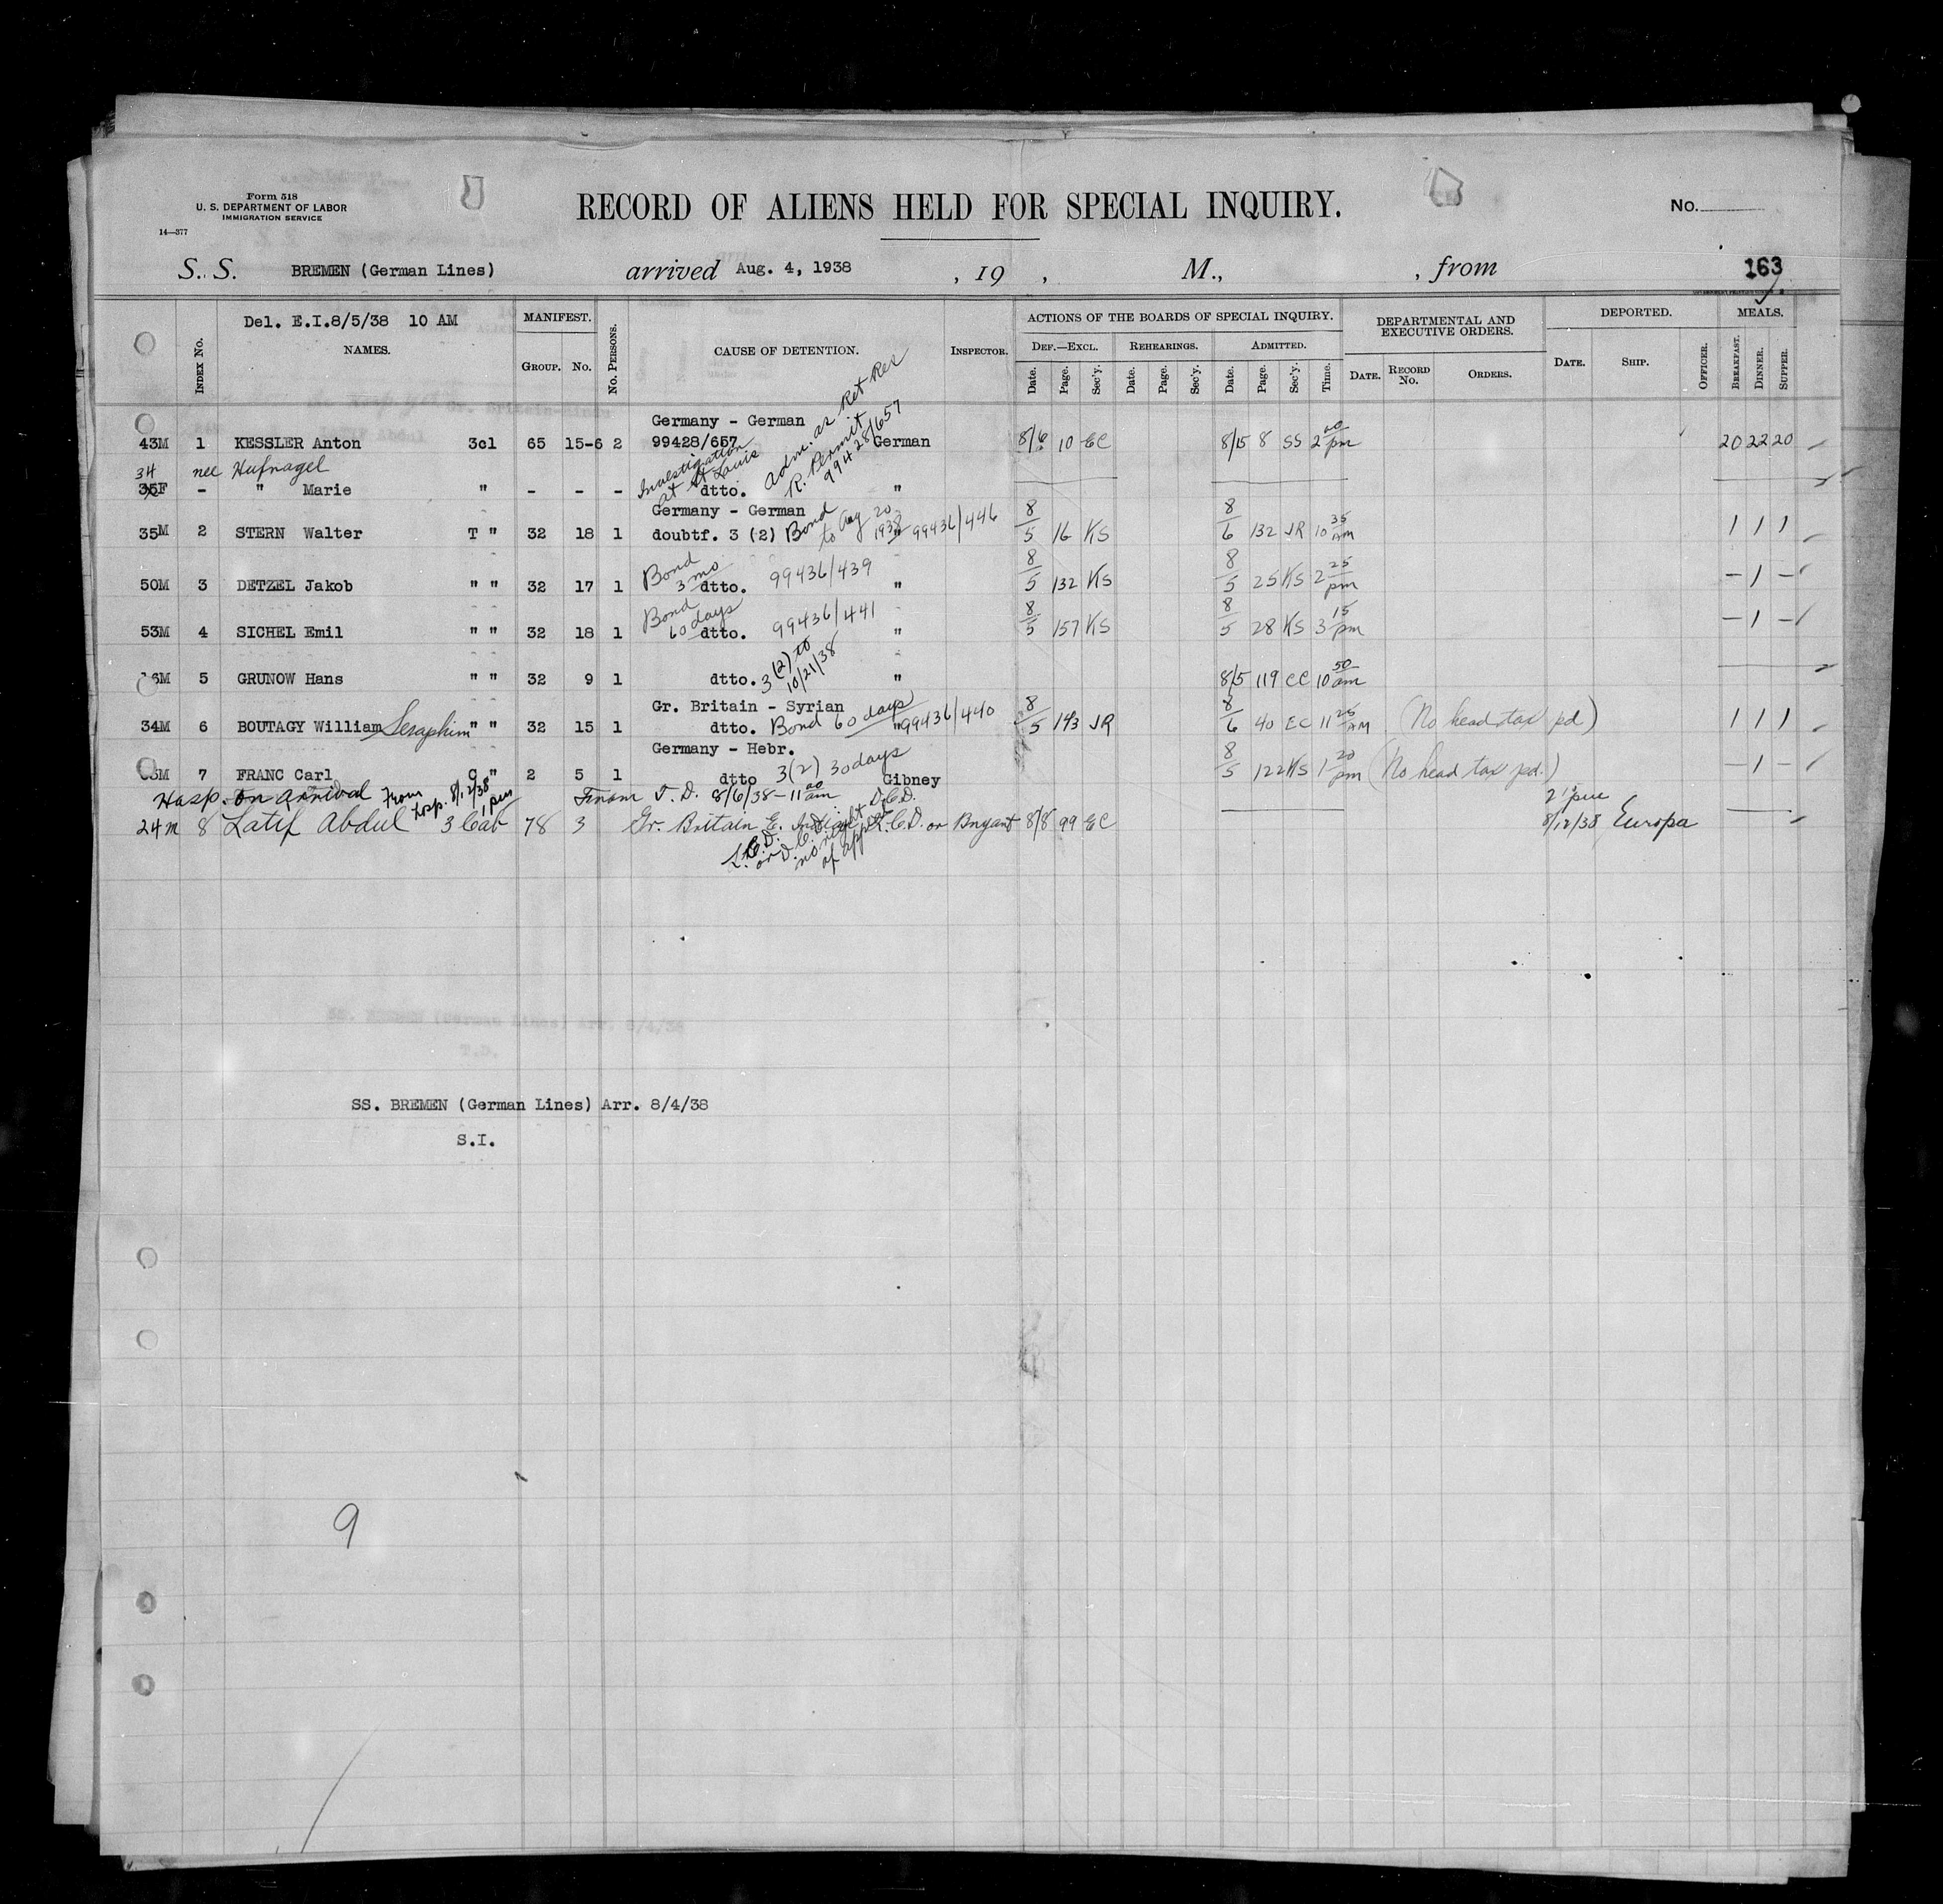 Form 518
U. S. DEPARTMENT OF LABOR
IMMIGRATION SERVICE
14—377
RECORD OF ALIENS HELD FOR SPECIAL INQUIRY.
No.
S. S. BREMEN (German Lines) arrived Aug. 4, 1938 , 19 , M., , from 163
Del. E.I.8/5/38 10 AM
INDEX No. NAMES. MANIFEST. GROUP. No. No. PERSONS. CAUSE OF DETENTION. INSPECTOR. ACTIONS OF THE BOARDS OF SPECIAL INQUIRY. DEF.—EXCL. Date. Page. Sec'y. REHEARINGS. Date. Page. Sec'y. ADMITTED. Date. Page. Sec'y. Time. DEPARTMENTAL AND EXECUTIVE ORDERS. DATE. RECORD No. ORDERS. DEPORTED. DATE. SHIP. OFFICER. MEALS. BREAKFAST. DINNER. SUPPER.
Germany - German
43M 1 KESSLER Anton 3cl 65 15-6 2 99428/657 German 8/6 10 EC 8/15 8 SS 2 00 pm 20 22 20
Investigation at St Louis
Adm. as Ret Res
R. Permit
99428/657
34 nee Hufnagel
35F - " Marie " - - - dtto. "
Germany - German
35M 2 STERN Walter T " 32 18 1 doubtf. 3 (2) Bond to Aug 20 1938 " 99436/446 8/5 16 KS 8/6 132 JR 10 35 AM 1 1 1
50M 3 DETZEL Jakob " " 32 17 1 Bond 3 mo dtto. 99436/439 " 8/5 132 KS 8/5 25 KS 2 25 pm - 1 -
53M 4 SICHEL Emil " " 32 18 1 Bond 60 days dtto. 99436/441 " 8/5 157 KS 8/5 28 KS 3 15 pm - 1 -
6M 5 GRUNOW Hans " " 32 9 1 dtto. 3(2) to 10/21/38 " 8/5 119 CC 10 50 am
Gr. Britain - Syrian
34M 6 BOUTAGY William Seraphim " " 32 15 1 dtto. Bond 60 days " 99436/440 8/5 143 JR 8/6 40 EC 11 25 AM (No head tax pd) 1 1 1
Germany - Hebr.
M 7 FRANC Carl " 2 5 1 dtto 3(2) 30 days Gibney 8/5 122 KS 1 20 pm (No head tax pd.) - 1 -
Hosp. on arrival From Hosp. 8/12/38 1 pm From T. D. 8/6/38 - 11 00 am
24m 8 Latif Abdul 3 Cab 78 3 Gr. Britain E. Indian L.C.D. or D.C.D. Bryant 8/8 99 EC 8/12/38 Europa
L.C.D. or D.C.D. no right of appeal
SS. BREMEN (German Lines) Arr. 8/4/38
S.I.
9